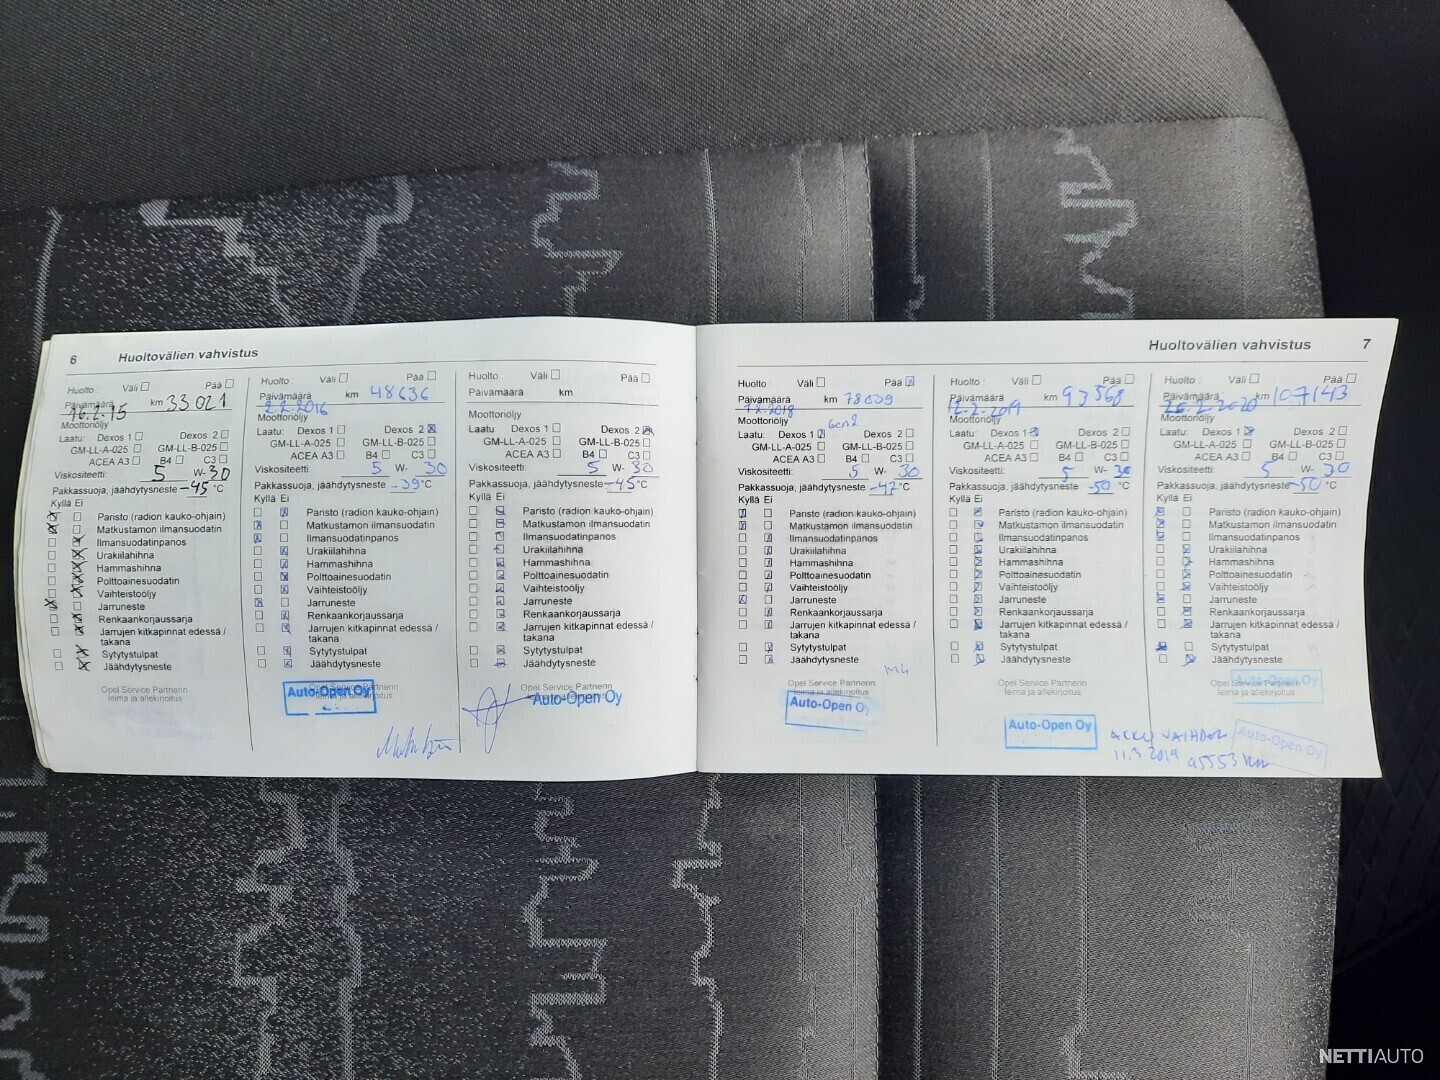 6 Huoltovälien vahvistus
Huolto : Väli Pää
Päivämäärä 16.2-15 km 33021
Moottoriöljy
Laatu: Dexos 1 Dexos 2
GM-LL-A-025 GM-LL-B-025
ACEA A3 B4 C3
Viskositeetti: 5 W-30
Pakkassuoja, jäähdytysneste -45 °C
Kyllä Ei
Paristo (radion kauko-ohjain)
Matkustamon ilmansuodatin
Ilmansuodatinpanos
Urakiilahihna
Hammashihna
Polttoainesuodatin
Vaihteistoöljy
Jarruneste
Renkaankorjaussarja
Jarrujen kitkapinnat edessä /
takana
Sytytystulpat
Jäähdytysneste
Opel Service Partnerin
leima ja allekirjoitus
Huolto : Väli Pää
Päivämäärä 2.2.2016 km 48636
Moottoriöljy
Laatu: Dexos 1 Dexos 2
GM-LL-A-025 GM-LL-B-025
ACEA A3 B4 C3
Viskositeetti: 5 W- 30
Pakkassuoja, jäähdytysneste -39 °C
Kyllä Ei
Paristo (radion kauko-ohjain)
Matkustamon ilmansuodatin
Ilmansuodatinpanos
Urakiilahihna
Hammashihna
Polttoainesuodatin
Vaihteistoöljy
Jarruneste
Renkaankorjaussarja
Jarrujen kitkapinnat edessä /
takana
Sytytystulpat
Jäähdytysneste
Opel Service Partnerin
leima ja allekirjoitus
Auto-Open Oy
Huolto Väli Pää
Päivämäärä km
Moottoriöljy
Laatu: Dexos 1 Dexos 2
GM-LL-A-025 GM-LL-B-025
ACEA A3 B4 C3
Viskositeetti: 5 W- 30
Pakkassuoja, jäähdytysneste -45 °C
Kyllä Ei
Paristo (radion kauko-ohjain)
Matkustamon ilmansuodatin
Ilmansuodatinpanos
Urakiilahihna
Hammashihna
Polttoainesuodatin
Vaihteistoöljy
Jarruneste
Renkaankorjaussarja
Jarrujen kitkapinnat edessä /
takana
Sytytystulpat
Jäähdytysneste
Opel Service Partnerin
leima ja allekirjoitus
Auto-Open Oy
Huoltovälien vahvistus 7
Huolto : Väli Pää
Päivämäärä km
Moottoriöljy
Laatu: Dexos 1 Dexos 2
GM-LL-A-025 GM-LL-B-025
ACEA A3 B4 C3
Viskositeetti: 5 W- 30
Pakkassuoja, jäähdytysneste -42 °C
Kyllä Ei
Paristo (radion kauko-ohjain)
Matkustamon ilmansuodatin
Ilmansuodatinpanos
Urakiilahihna
Hammashihna
Polttoainesuodatin
Vaihteistoöljy
Jarruneste
Renkaankorjaussarja
Jarrujen kitkapinnat edessä /
takana
Sytytystulpat
Jäähdytysneste
Opel Service Partnerin
leima ja allekirjoitus
Auto-Open Oy
Huolto : Väli Pää
Päivämäärä 12.2.2019 km 93568
Moottoriöljy
Laatu: Dexos 1 Dexos 2
GM-LL-A-025 GM-LL-B-025
ACEA A3 B4 C3
Viskositeetti: 5 W- 30
Pakkassuoja, jäähdytysneste -50 °C
Kyllä Ei
Paristo (radion kauko-ohjain)
Matkustamon ilmansuodatin
Ilmansuodatinpanos
Urakiilahihna
Hammashihna
Polttoainesuodatin
Vaihteistoöljy
Jarruneste
Renkaankorjaussarja
Jarrujen kitkapinnat edessä /
takana
Sytytystulpat
Jäähdytysneste
Opel Service Partnerin
leima ja allekirjoitus
Auto-Open Oy
Huolto : Väli Pää
Päivämäärä 26.2.2020 km 107143
Moottoriöljy
Laatu: Dexos 1 Dexos 2
GM-LL-A-025 GM-LL-B-025
ACEA A3 B4 C3
Viskositeetti: 5 W- 30
Pakkassuoja, jäähdytysneste -50 °C
Kyllä Ei
Paristo (radion kauko-ohjain)
Matkustamon ilmansuodatin
Ilmansuodatinpanos
Urakiilahihna
Hammashihna
Polttoainesuodatin
Vaihteistoöljy
Jarruneste
Renkaankorjaussarja
Jarrujen kitkapinnat edessä /
takana
Sytytystulpat
Jäähdytysneste
Opel Service Partnerin
leima ja allekirjoitus
Auto-Open Oy
AKKU VAIHDOT
11.3 2019 95553 km
Auto-Open Oy
NETTIAUTO